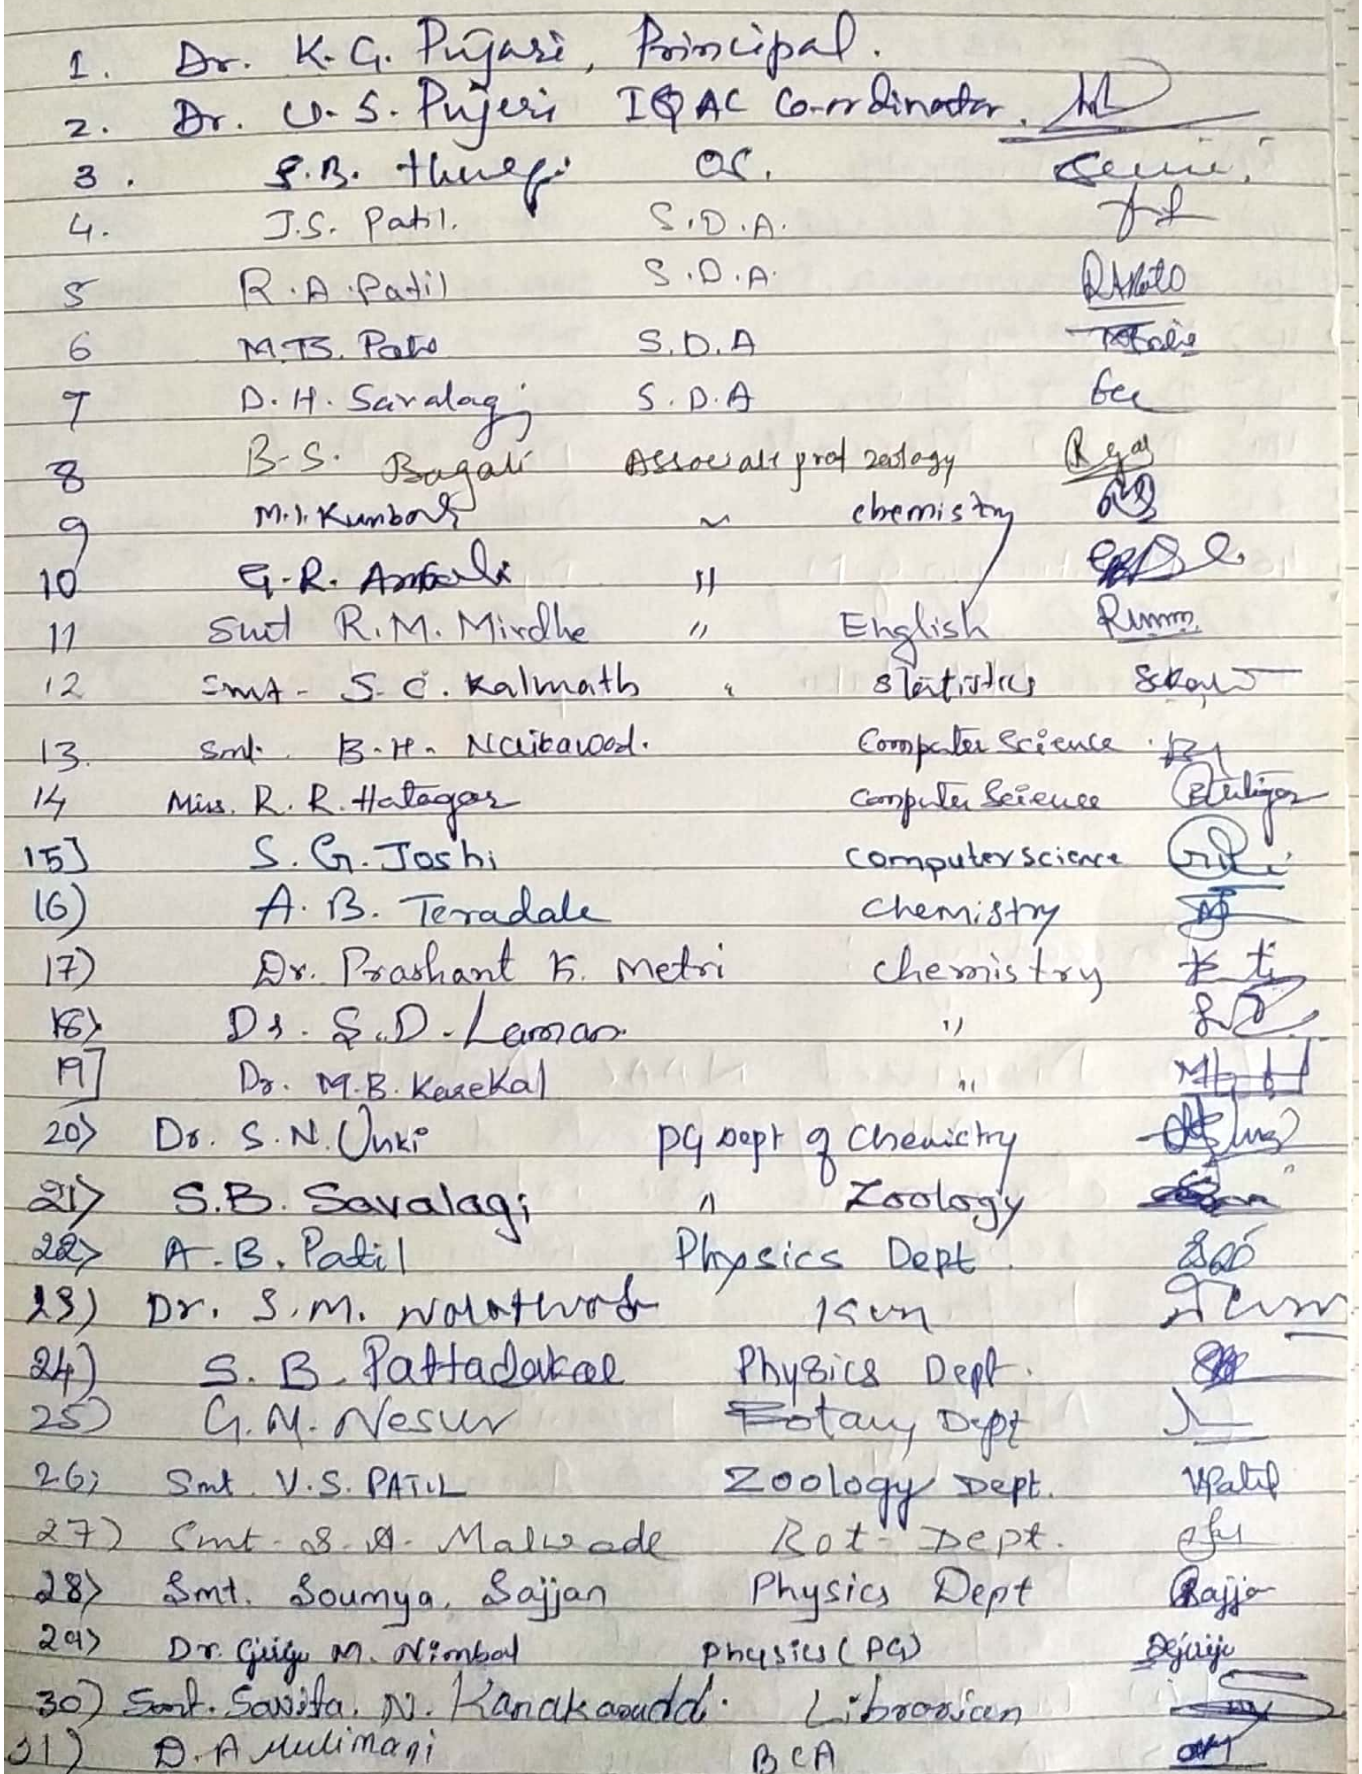 1. Dr. K. G. Pujari, Principal.
2. Dr. U. S. Pujeri IQAC Co-ordinator.
3. S.B. OS.
4. J.S. Patil. S.D.A.
5 R.A. Patil S.D.A.
6 M.B. S.D.A
7 D.H. Savalagi S.D.A
8 B.S. Bagali Associate prof zoology
9 M.I. chemistry
10 G.R. Ambali "
11 Smt R.M. Mirdhe " English
12 Smt - S. C. Kalmath " Statistics
13. Smt. B.H. Naikawadi. Computer Science
14 Miss. R. R. Hatagar Computer Science
15] S. G. Joshi computer science
16) A. B. Teradale chemistry
17) Dr. Prashant K. Metri chemistry
18) Dr. S.D. Laman "
19] Dr. M.B. Karekal "
20) Dr. S.N. Unki PG Dept of Chemistry
21) S.B. Savalagi " Zoology
22) A.B. Patil Physics Dept.
23) Dr. S.M. Kan
24) S. B. Pattadakal Physics Dept.
25) G.M. Nesur Botany Dept
26) Smt. V.S. PATIL Zoology Dept. VPatil
27) Smt. S. A. Malwade Bot- Dept.
28) Smt. Soumya. Sajjan Physics Dept Sajjan
29) Dr. M. Nimbal Physics (PG)
30) Smt. Savita. N. Librarian
31) D. A Mulimani BCA